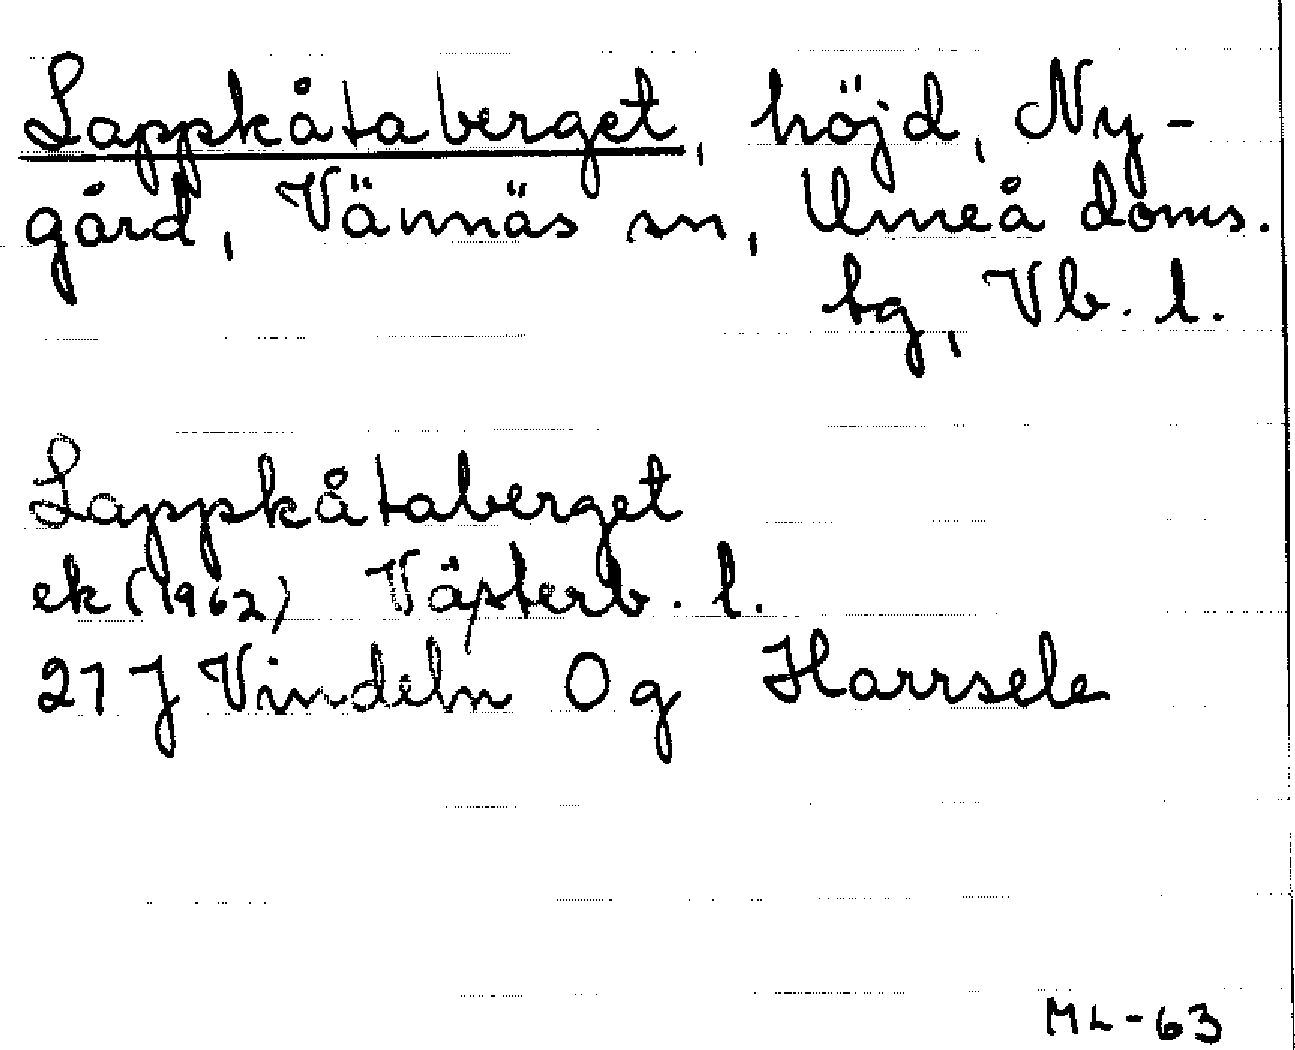 Lappkåtaberget, höjd, Ny-
gård, Vännäs sn, Umeå doms.
tg, Vb. l.
Lappkåtaberget
ek (1962) Västerb. l.
21 J Vindeln 0 g Harrsele
ML-63